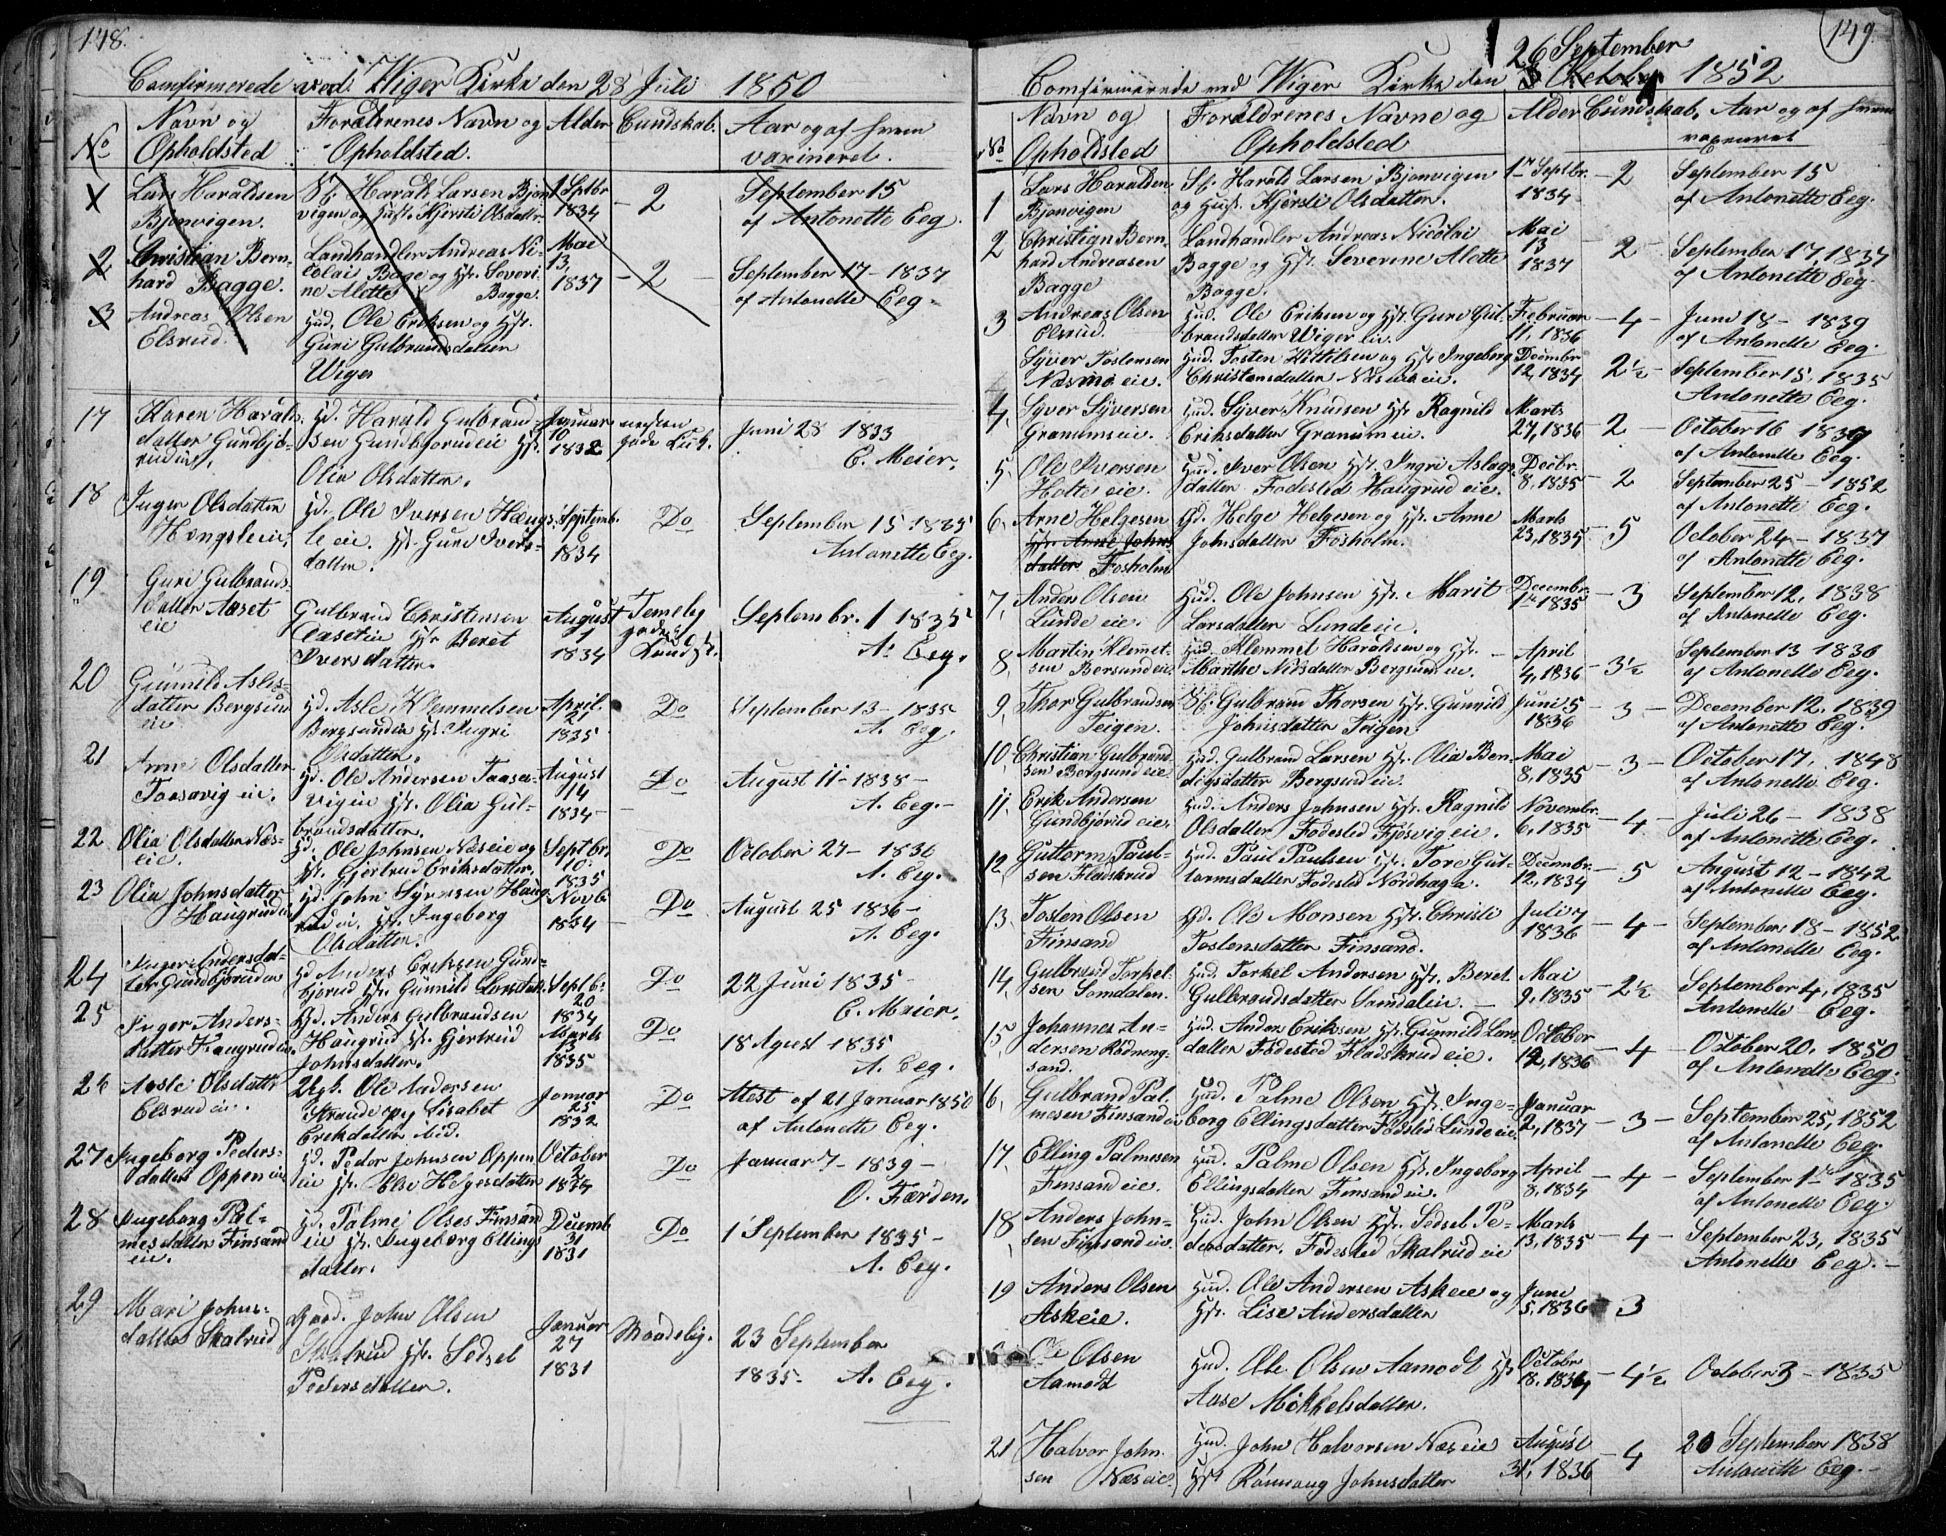 148.
Comfirmerede ved Wiger Kirke den 28 Juli 1850
No
Navn og
Opholdsted
Forældrenes Navn og
Opholdsted.
Alder
Cundskab.
Aar og af hvem
vaxineret.
1
Lars Haraldsen
Bjonvigen.
Sf. Harald Larsen Bjon-
vigen og Hust. Kjersti Olsdatter
1 Sptbr
1834
2
September 15
af Antonette Eeg.
2
Christian Bern-
hard Bagge.
Landhandler Andreas Ni-
colai Bage og Hst. Severi-
ne Alette Bagge.
Mai
13,
1837
2
September 17 - 1837
af Antonette Eeg.
3
Andreas Olsen
Elsrud.
Hud. Ole Eriksen og Hst.
Guri Gulbrandsdatter
Wiger
17
Karen Harals-
datter Gundbjø-
rud eie,
Hd. Harald Gulbrand-
sen Gundbjorud eie Hst.
Olia Olsdatter.
Januar
10
1832
næsten
gode Kdsk.
Juni 28 1833
C. Meier.
18
Inger Olsdatter
Hongsle eie,
Hd. Ole Iversen Hængs-
le eie. Hst. Guri Ivers-
datter.
Septemb.
6
1834
Do
September 15 1835
Antonette Eeg.
19
Guri Gulbrands-
datter Aaset
eie
Gulbrand Christensen
Aaset eie Hst Beret
Iversdatter.
August
1
1834
Temelig
gode
Kundsk.
Septembr. 1 1835
A. Eeg.
20
Gunnild Asles-
datter Bergsun
eie
Hd. Asle Klemmelsen
Bergsund eie Hst. Ingri
Olsdatter.
April.
21
1835
Do
September 13 - 1835
A. Eeg.
21
Anne Olsdatter
Taasavig eie.
Hd. Ole Andersen Taasa-
vig eie Hst. Olia Gul-
brandsdatter.
August
14
1834
Do
August 11 - 1838 -
A. Eeg. -
22
Olia Olsdatter Næs-
eie.
Hd. Ole Johnsen Næs eie og
Hst. Gjertrud Eriksdatter.
Septbr.
10
1835
Do
October 27 - 1836
A. Eeg.
23
Olia Johnsdatter
Haugrud eie
Hd. John Syversen Haug-
rud eie, Hst. Ingeborg
Olsdatter.
Novb
1
1834
Do
August 25 1836 -
A. Eeg.
24
Inger Andersdat-
ter Gundbjørud eie
Hd Anders Eriksen Gund-
bjorud Hst. Gunnild Larsdatr.
Septb:
20
1834
Do
22 Juni 1835
C. Meier.
25
Inger Anders-
datter Haugrud eie.
Hd. Anders Gulbrandsen
Haugrud Hst. Gjertrud
Johnsdatter.
Marts
13
1835
Do
18 Agust 1835
A. Eeg.
26
Aasle Olsdatter
Elsrud eie.
Ole Andersen
Strande og Lisabet
Erikdatter ibid.
Januar
25
1832
Do
Attest af 21 Januar 1850
af Antonette Eeg.
27
Ingeborg Peders-
datter Oppen eie
Hd. Peder Johnsen Oppen
eie Hst. Else Helgesdatter
October
2
1834
Do
Januar 7 - 1839 -
O. Færden.
28
Ingeborg Pal-
mesdatter Finsand
eie.
Hd. Palme Olsen Finsand
eie Hst. Ingeborg Ellings-
datter.
Decemb
31
1831
Do
1 September 1835 -
A. Eeg.
29
Mari Johns-
datter Skalrud
Gaard. John Olsen
Skalrud Hst. Sedsel
Pedersdatter.
Januar
27
1831
Maadelig.
23 September
1835 - A. Eeg.
149
26 September
Comfirmerede ved Wiger Kirke den 3 October 1852
No
Navn og
Opholdsted
Forældrenes Navne og
Opholdsted
Alder
Cundskab,
Aar og af hvem
vaxeneret
1
Lars Haralden
Bjonvigen
Sf. Harald Larsen Bjonvigen
og Hust. Kjersti Olsdatter.
1st Septbr.
1834
2
September 15
af Antonette Eeg.
2
Christian Bern-
hard Andreasen
Bagge
Landhandler Andreas Nicolai
Bagge og Hst. Severine Alette
Bagge.
Mai
13
1837
2
September 17, 1837
af Antonette Eeg.
3
Andreas Olsen
Elsrud.
Hud. Ole Eriksen og Hst Guri Gul-
brandsdatter Wiger eie.
Februar
11, 1836
4
Juni 18 - 1839
af Antonette Eeg.
Syver Tostensen
Næsmo eie.
Hud. Tosten Kittilsen og Hst Ingeborg
Christensdatter Næsmo eie.
Decmbr
12, 1834
2½
September 15, 1835
Antonette Eeg.
4,
Syver Syversen
Granum eie.
Hud. Syver Knudsen Hst. Ragnild
Eriksdatter Granum eie.
Marts
27, 1836
2
October 16 1837
af Antonette Eeg.
5.
Ole Iversen
Holte eie.
Hud. Iver Olsen Hst. Ingri Aslags-
datter Fodested Haugrud eie.
Decbr.
8, 1835
2
September 25 - 1852
af Antonette Eeg.
6,
Arne Helgesen
Hst. Anne Johns-
datter Fosholm
Gd. Helge Helgesen og Hst. Anne
Johnsdatter Fosholm.
Marts
23, 1835
5
October 24 - 1837
af Antonette Eeg.
7,
Anders Olsen
Lunde eie.
Hud. Ole Johnsen Hst. Marit
Larsdatter Lunde eie.
Decembr.
1ste 1835
3
September 12, 1838
af Antonette Eeg.
8,
Martin Klemmet-
sen Bersund eie.
Hud. Klemmet Haraldsen og Hst. -
Marthe Nilsdatter Bergsund eie.
April
4, 1836
3½
September 13 1836
af Antonette Eeg.
9,
Thor Gulbrandsen
Teigen.
Sf. Gulbrand Thorsen Hst. Gunnild
Johnsdatter Teigen.
Juni 5
1836
3
December 12, 1839
af Antonette Eeg.
10,
Christian Gulbrand-
sen Bergsund eie.
Hud. Gulbrand Larsen Hst. Olia Ben-
digsdatter Bergsund eie.
Mai
8, 1835
3
October 17, 1848
af Antonette Eeg.
11,
Erik Andersen
Gundbjørud eie.
Hud. Anders Johnsen Hst. Ragnild
Olsdatter Fodested Fjosvig eie.
Novembr.
6, 1835
4
Juli 26 - 1838
af Antonette Eeg.
12,
Guttorm Paul-
sen Fladskrud
Hud. Paul Paulsen Hst. Tore Gut-
tormsdatter Fodested Nordhaga.
Decmbr.
12, 1834
5
August 12 - 1842
af Antonette Eeg.
13,
Tosten Olsen
Finsand
Gd. Ole Monsen Hst. Christi
Tostensdatter Finsand.
Juli 7
1836
4
September 18 - 1852
af Antonette Eeg.
14,
Gulbrand Torkel-
sen Somdalen.
Hud. Torkel Andersen Hst. Beret
Gulbrandsdatter Somdal eie. -
Mai
9, 1835
2½
September 4, 1835
Antonette Eeg.
15,
Johannes An-
dersen Rødneng-
sand.
Hud. Anders Eriksen Hst. Gunnild Lars-
datter Fodested Fladskrud eie.
October
12, 1836
4
October 20, 1850
af Antonette Eeg.
16,
Gulbrand Pal-
mesen Finsand eie
Hud. Palme Olsen Hst. Inge-
borg Ellingsdatter Fodsted Lunde eie.
Januar
2, 1837
3
September 25, 1852
af Antonette Eeg.
17,
Elling Palmesen
Finsand eie.
Hud. Palme Olsen Hst. Ingeborg
Ellingsdatter Finsand eie.
April
8, 1834
4
September 1ste 1835
af Antonette Eeg.
18,
Anders John-
sen Finsand eie.
Hud. John Olsen Hst. Sedsel Pe-
dersdatter. Fodested Skalrud eie
Marts
13, 1835
4
September 23, 1835
Antonette Eeg. -
19
Anders Olsen
Ask eie.
Hud. Ole Andersen Ask eie og
Hst. Lise Andersdatter
Juni
5, 1836
3
Ole Olsen
Aamodt
Hud. Ole Olsen Aamodt Hst
Aase Mikkelsdatter.
Octobr
18. 1834
4½
October 3 - 1835
21
Halvor John-
sen Næs eie.
Hud. John Halvorsen Næs eie
Hst Rønnaug Johnsdatter
August
31, 1836
4
20 September 1838
Antonette Eeg. -